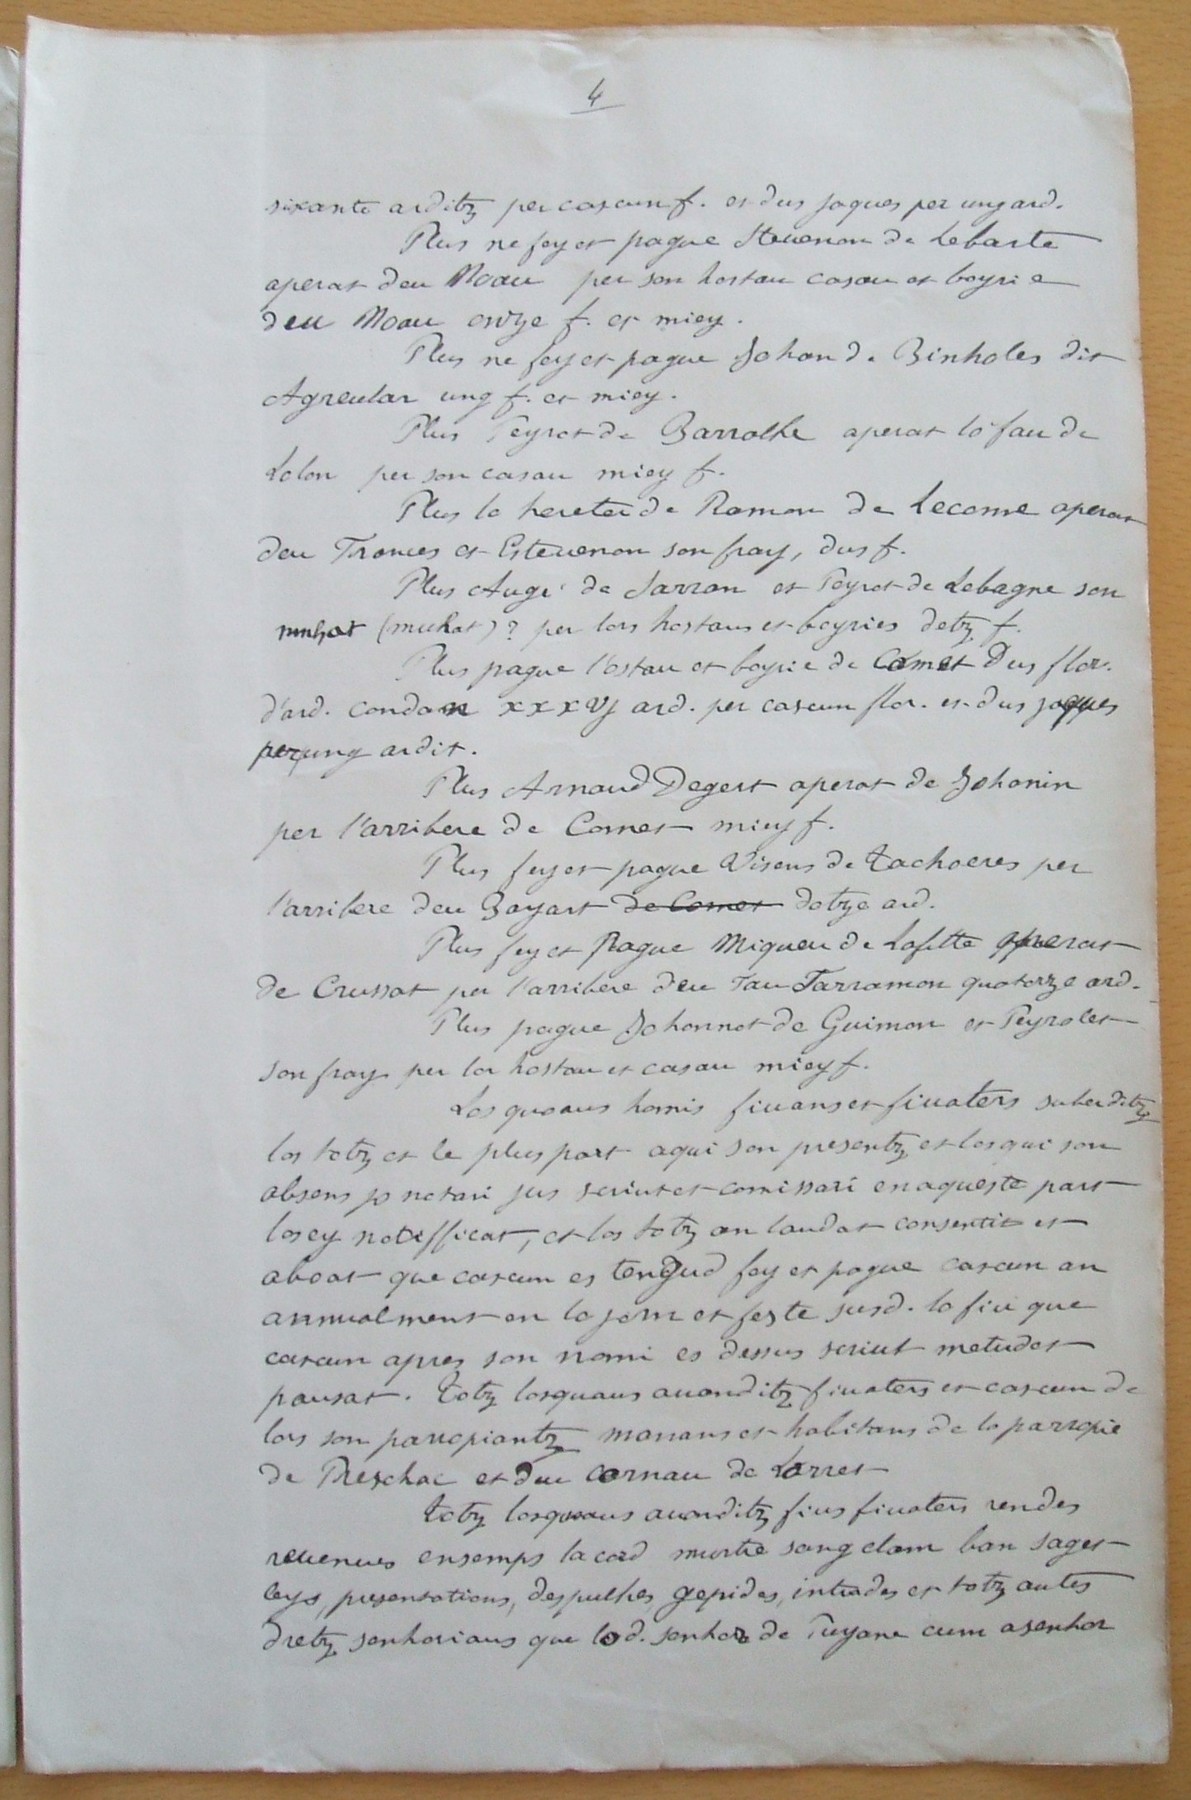 4
sixante arditz per cascun f. et dus jaques per ung ard.
Plus ne fey et pague Steuenon de Lebaste
aperat deu Moau per son hostau casau et boyrie
deu Moau onze f. et miey.
Plus ne fey et pague Johan de Binholes dit
Agreular ung f. et miey.
Plus Peyrot de Barrolhe aperat lo fau de
Lolon per son casau miey f.
Plus lo hereter de Ramon de Lecome aperat
deu Tronces et Esteuenon son fray, dus f.
Plus Augé de Sarran et Peyrot de Lebagne son
nunhat (mulhat)? per lors hostaus et boyries detz f.
Plus pague l'ostau et boyrie de Comet dus flor.
d'ard. condan xxxvj ard. per cascun flor. et dus jaques
per ung ardit.
Plus Arnaud Degert aperat de Johanin
per l'arribere de Comet miey f.
Plus fey et pague Visens de Tachoeres per
l'arribere deu Bayart de Comet dotze ard.
Plus fey et Pague Miqueu de Lafitte aperat
de Crussat per l'arribere deu Tau Tarramon quatorze ard.
Plus pague Johannot de Guimon et Peyrolet
son fray per lor hostau et casau miey f.
Los quoaus homis fiuans et fiuaters suberditz
los totz et le plus part aqui son presentz et los qui son
absens jo notari jus scriut et comissari en aqueste part
los ey notifficat, et los totz an laudat consentit et
aboat que cascun es tengud fey et pague cascun an
annualment en lo jorn et feste susd. lo fiu que
cascun apres son nomi es dessus scriut metudet
pausat. Totz losquaus auanditz fiuaters et cascun de
lors son parropiantz manans et habitans de la parropie
de Preschac et deu cornau de Larret
Totz losquoaus auanditz fius fiuaters rendes
reuenues ensemps la card murtre sang clam ban saget
leys, presentations, despulhes, gepides, intrades et totz autes
dretz senhoriaus que lod. senhor de Puyane cum a senhor